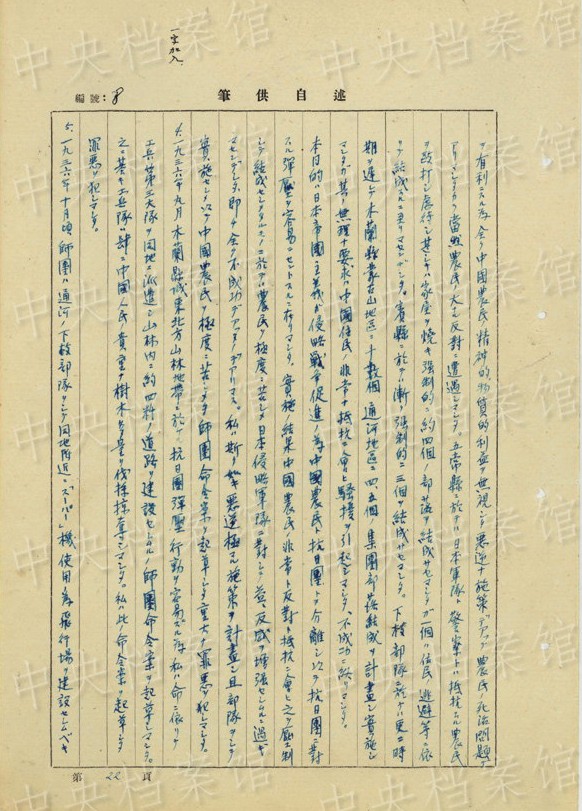 一字加入
筆供自述
編號：8
ヲ有利ニスル為全ク中国農民ノ精神的物質的利益ヲ無視シタ悪逆ナ施策デアツテ農民ノ死活問題デ
アリマシタカラ当然農民ノ大ナル反対ニ遭遇シマシタ。五常縣ニ於テハ日本軍隊ト警察トハ抵抗スル農民
ヲ殴打シ
家屋ヲ焼キ強制的ニ約四個ノ部落ヲ結成サセマシタガ一個ハ住民ノ逃避等ニ依
リ結成スルニ至リマセンデシタ。賓縣ニ於テハ漸ク強制的ニ三個結成サセマシタ。下枝部隊ニ於テハ更ニ時
期ヲ遅レテ木蘭縣蒙古山地区ニ十数個、通河地区ニ四五個ノ集団部落結成ヲ計画シ実施シ
マシタガ其ノ無理ナ要求ハ中国住民ノ非常ナ抵抗ニ会ヒ騒擾ヲ引起シマシタ、不成功ニ終リマシタ。
本目的ハ日本帝国主義ガ侵略戦争促進ノ為中国農民ト抗日団トヲ分離シ以テ抗日団ニ対
スル弾圧ヲ容易ニセントスルニ在リマシタ。実施ノ結果中国農民ノ非常ナ反対ト抵抗ニ会ヒ之ヲ圧制
シテ結成セシメタルモノニ於テハ農民ヲ極度ニ苦シメ日本侵略軍隊ニ対シテ益々反感ヲ増強セシムルニ過ギ
マセンデシタ、即チ全ク不成功デアツタノデアリマス。私ハ斯ノ如キ悪逆極マル施策ヲ計画シ且部隊ヲシテ
実施セシメ以テ中国農民ヲ極度ニ苦シメタ師団命令案ヲ起草シタ重大ナ罪悪ヲ犯シマシタ。
4.一九三六年九月木蘭縣城東北方山林地帯ニ於テ抗日団弾圧ノ行動ヲ容易ナラシムル為、私ハ命ニ依リテ
工兵第三大隊ヲ同地ニ派遣シ山林内ニ約四粁ノ道路ヲ建設セシムルノ師団命令案ヲ起草シマシタ。
之ニ基キ工兵隊ハ肆ニ中国人民ノ貴重ナ樹木多量ヲ伐採掠奪シマシタ。私ハ此ノ命令案ヲ起草シタ
罪悪ヲ犯シマシタ。
5.一九三六年十月頃師団ハ通河ノ下枝部隊ヲシテ同地附近ニ「スーパー」機使用ノ為飛行場ヲ建設セシムベキ
第22頁
中央档案馆